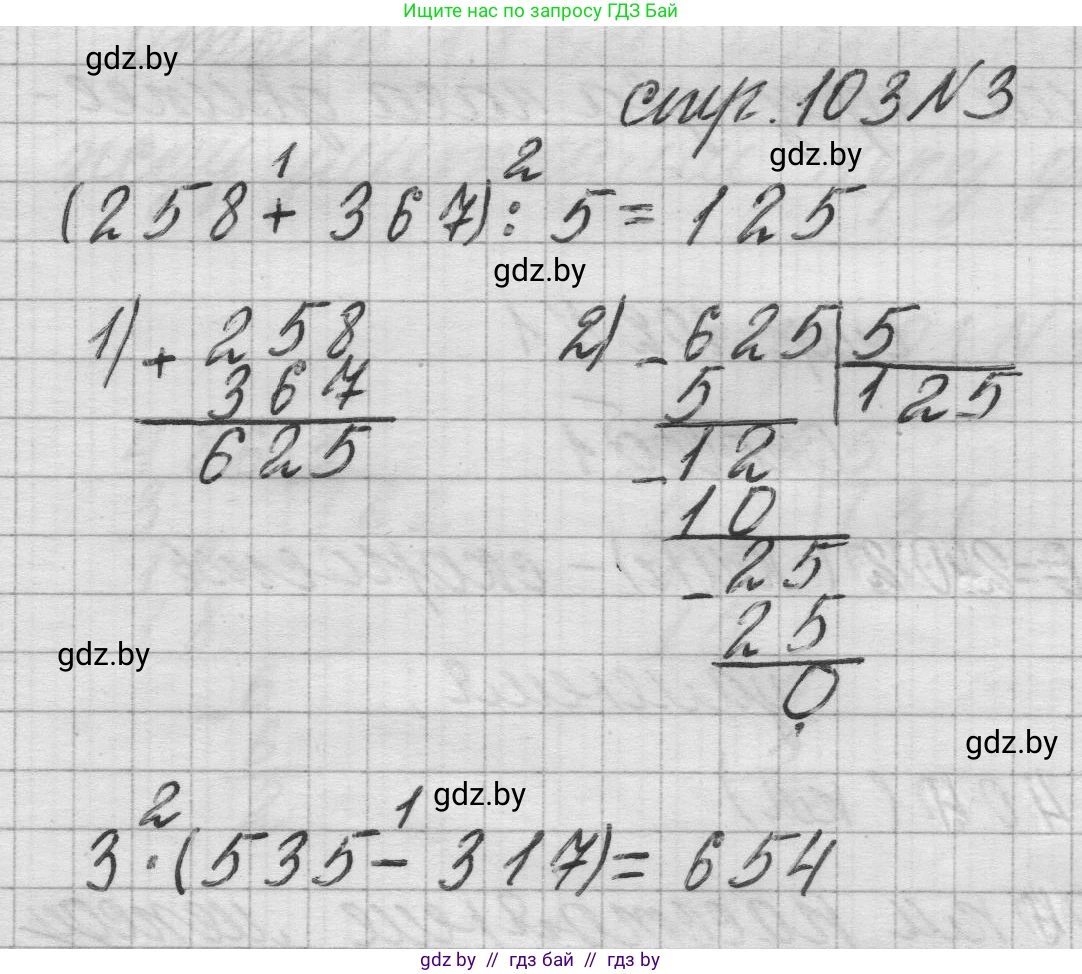 Ищите нас по запросу ГДЗ Бай
gdz.by
стр. 103 №3
gdz.by
1 2
(258 + 367) : 5 = 125
gdz.by
1) + 258
367
625
2) - 625 | 5
5 125
- 12
10
- 25
25
0
gdz.by
gdz.by
2 1 gdz.by
3 · (535 - 317) = 654
gdz by // гдз бай // гдз by